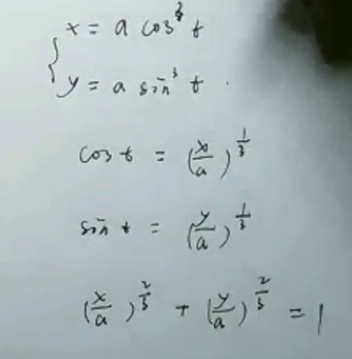 x = a cos³ t
y = a sin³ t .
cos t = (x/a)^(1/3)
sin t = (y/a)^(1/3)
(x/a)^(2/3) + (y/a)^(2/3) = 1